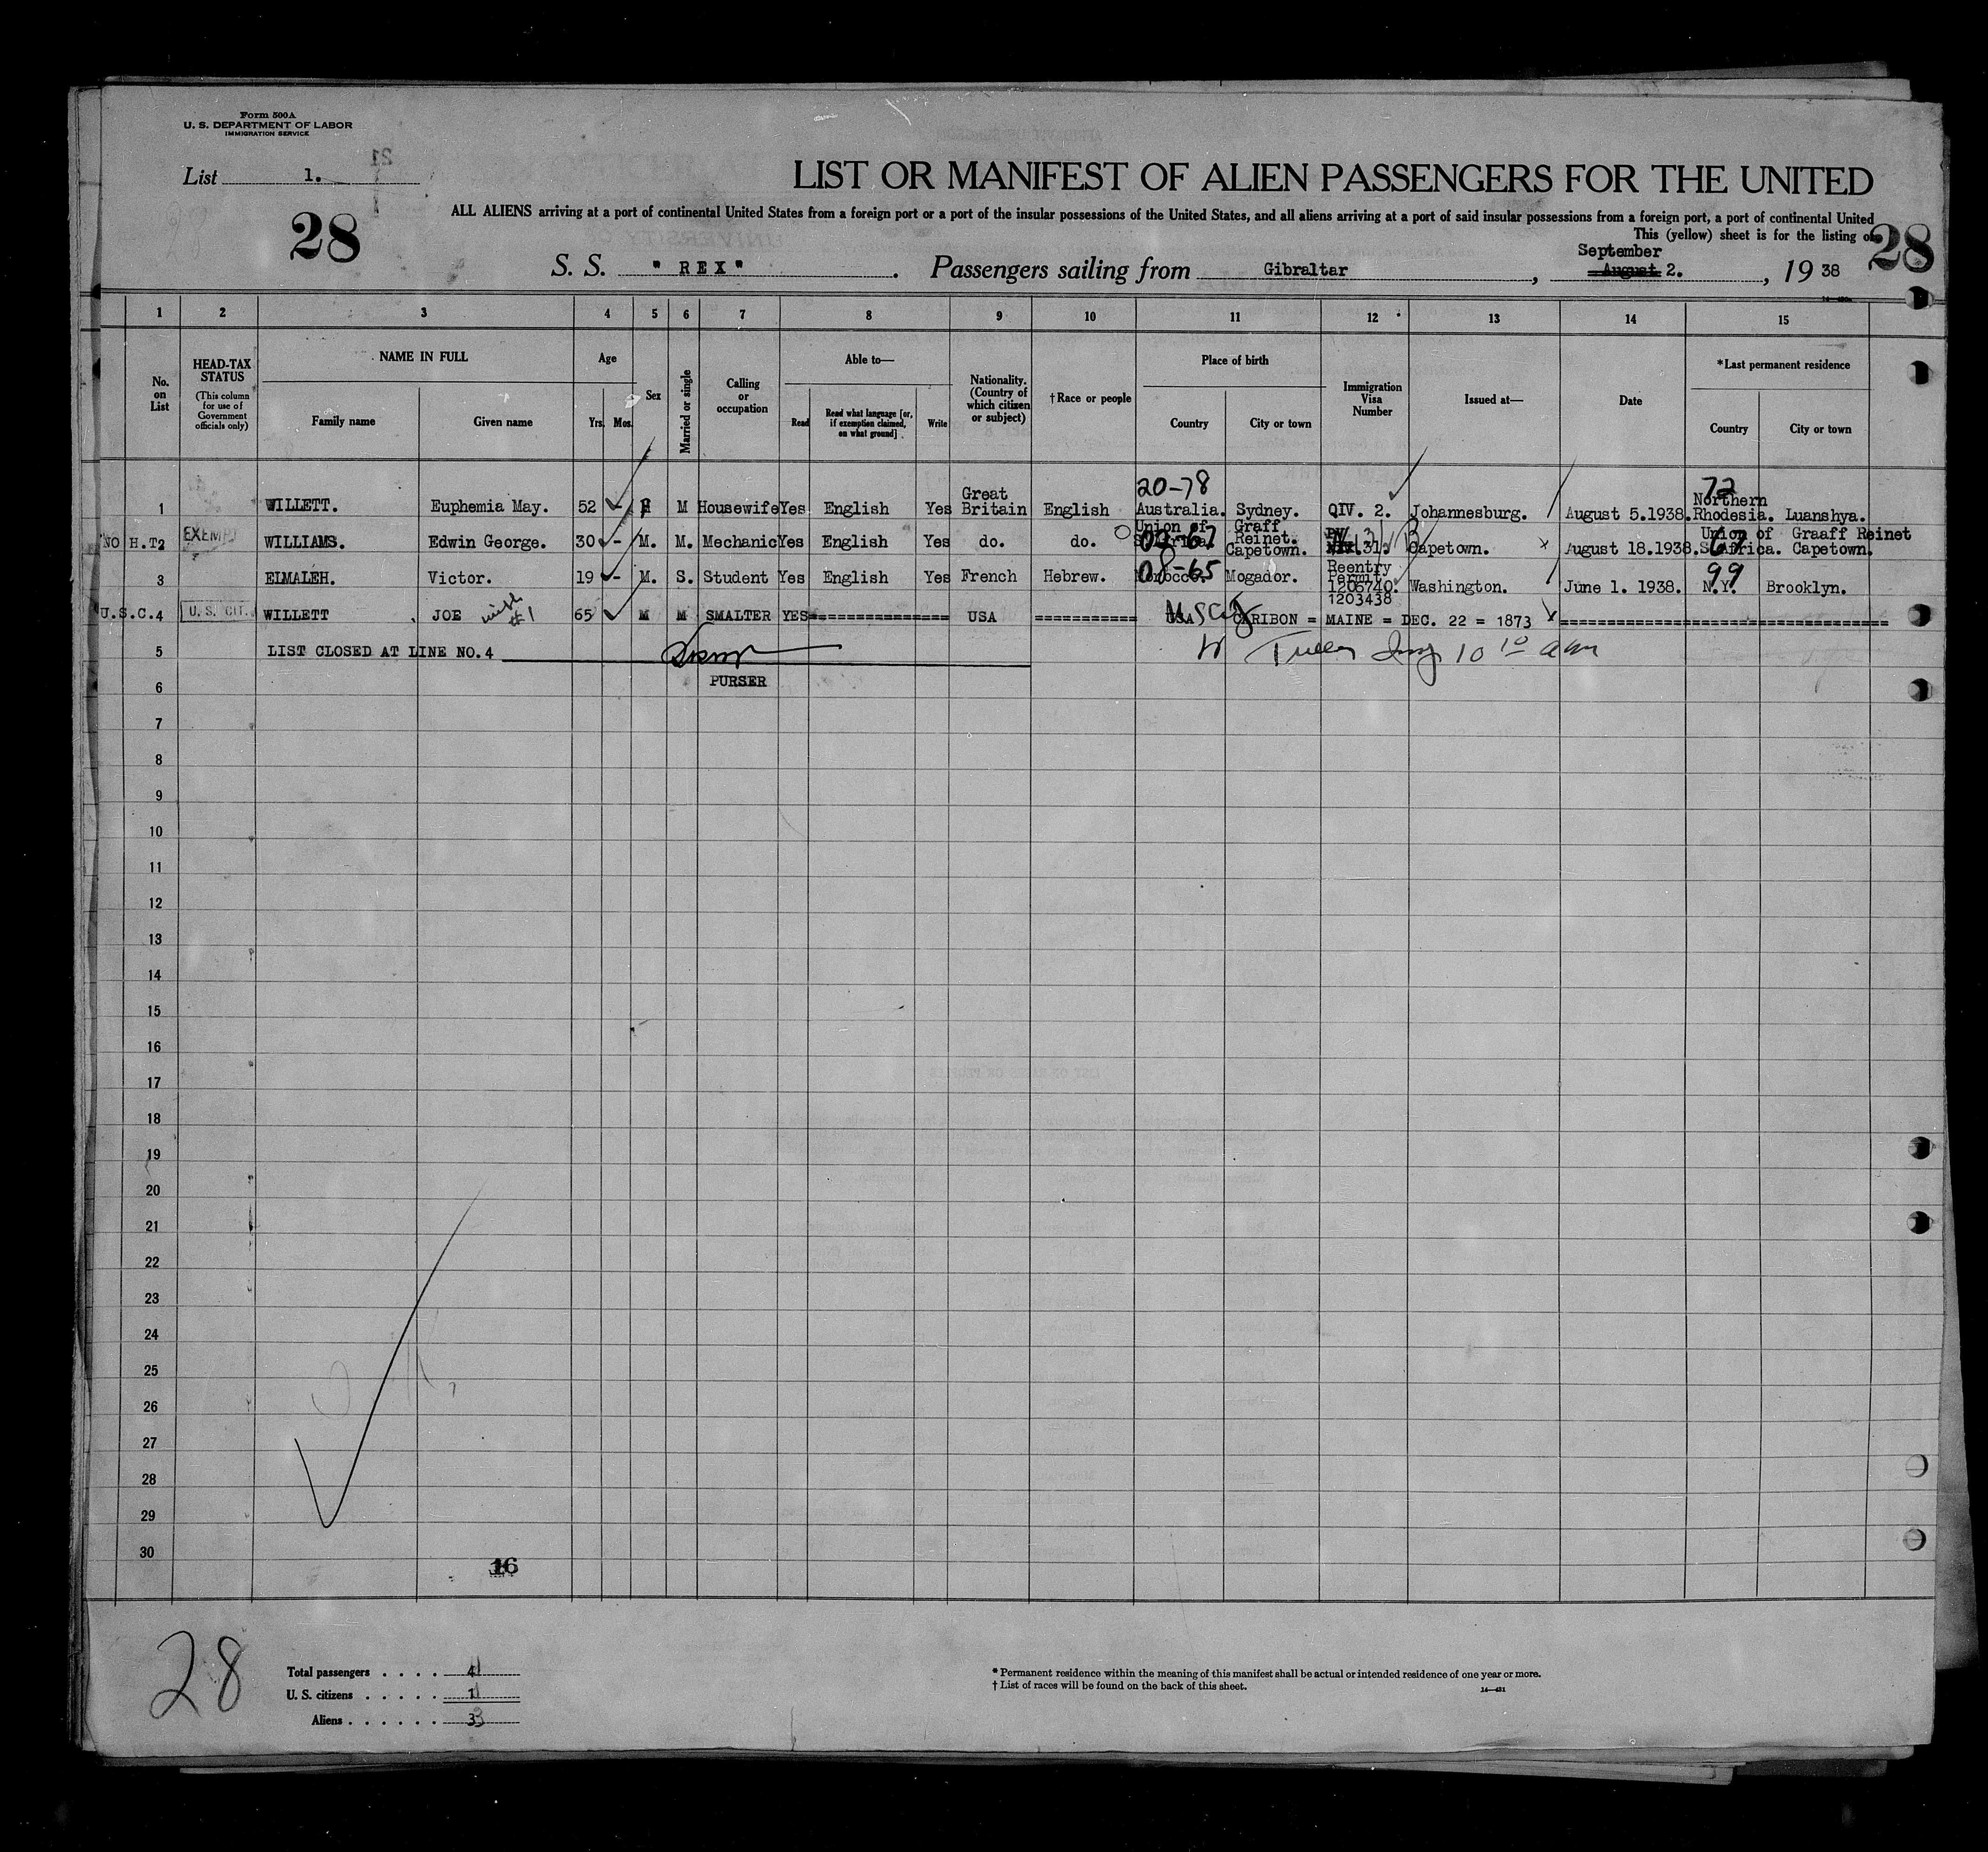 Form 500A
U. S. DEPARTMENT OF LABOR
IMMIGRATION SERVICE
List 1.
21
28
LIST OR MANIFEST OF ALIEN PASSENGERS FOR THE UNITED
ALL ALIENS arriving at a port of continental United States from a foreign port or a port of the insular possessions of the United States, and all aliens arriving at a port of said insular possessions from a foreign port, a port of continental United
This (yellow) sheet is for the listing of
28
S. S. "REX". Passengers sailing from Gibraltar, September August 2., 19 38
1 2 3 4 5 6 7 8 9 10 11 12 13 14 15
No. on List
HEAD-TAX STATUS (This column for use of Government officials only)
NAME IN FULL
Family name Given name
Age
Yrs. Mos.
Sex
Married or single
Calling or occupation
Able to—
Read Read what language [or, if exemption claimed, on what ground] Write
Nationality. (Country of which citizen or subject)
†Race or people
Place of birth
Country City or town
Immigration Visa Number
Issued at—
Date
*Last permanent residence
Country City or town
20-78 72
1 WILLETT. Euphemia May. 52 F M Housewife Yes English Yes Great Britain English Australia. Sydney. QIV. 2. Johannesburg. August 5.1938. Northern Rhodesia. Luanshya.
NO H.T. 2 EXEMPT WILLIAMS. Edwin George. 30 - M. M. Mechanic Yes English Yes do. do. Union of S. Africa. Graff Reinet. Capetown. 31. Capetown. August 18.1938. Union of S. Africa. Graaff Reinet Capetown.
67
3 ELMALEH. Victor. 19 - M. S. Student Yes English Yes French Hebrew. Morocco. 08-65 Mogador. Reentry Permit 1206740. 1203438 Washington. June 1. 1938. 99 N.Y. Brooklyn.
U.S.C. 4 U. S. CIT. WILLETT JOE with #1 65 M M SMALTER YES=============== USA =========== USA CARIBON = MAINE = DEC. 22 = 1873 ===================================
5 LIST CLOSED AT LINE NO.4
PURSER
6
7
8
9
10
11
12
13
14
15
16
17
18
19
20
21
22
23
24
25
26
27
28
29
30
16
28
Total passengers . . . . 4
U. S. citizens . . . . . 1
Aliens . . . . . . 3
* Permanent residence within the meaning of this manifest shall be actual or intended residence of one year or more.
† List of races will be found on the back of this sheet.
14—431